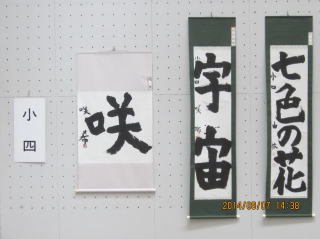 小四
咲
宇宙
七色の花
2014/06/07 14:38